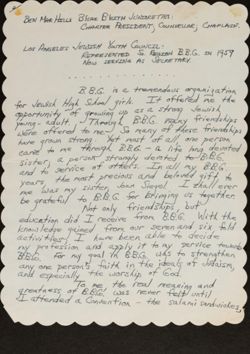 BEN MAR HILLS B'NAI B'RITH JUNORETTES:
CHARTER PRESIDENT, COUNSELOR, CHAPLAIN.
LOS ANGELES JEWISH YOUTH COUNCIL:
REPRESENTED SO. REGION B.B.G. IN 1959
NOW SERVING AS SECRETARY.
B.B.G. is a tremendous organization
for Jewish High School girls. It offered me the
opportunity of growing up as a strong Jewish
young adult. Through B.B.G. many friendships
were offered to me. So many of these friendships
have grown strong. Yet most of all one person
came to me through BBG - a life long devoted
sister, a person strongly devoted to BBG
and to service of others. In all my BBG
years the most precious and beloved gift to
me was my sister, Joan Siegel. I shall ever
be grateful to BBG for bringing us together.
Not only friendships, but
education did I receive from BBG. With the
knowledge gained from our seven and six fold
activities, I have been able to decide
my profession and apply it to my service towards
BBG. For my goal in BBG was to strengthen
any one person's faith in the ideals of Judaism,
and especially the worship of God.
To me, the real meaning and
greatness of B.B.G. was never felt until
I attended a Convention - the salami sandwiches,